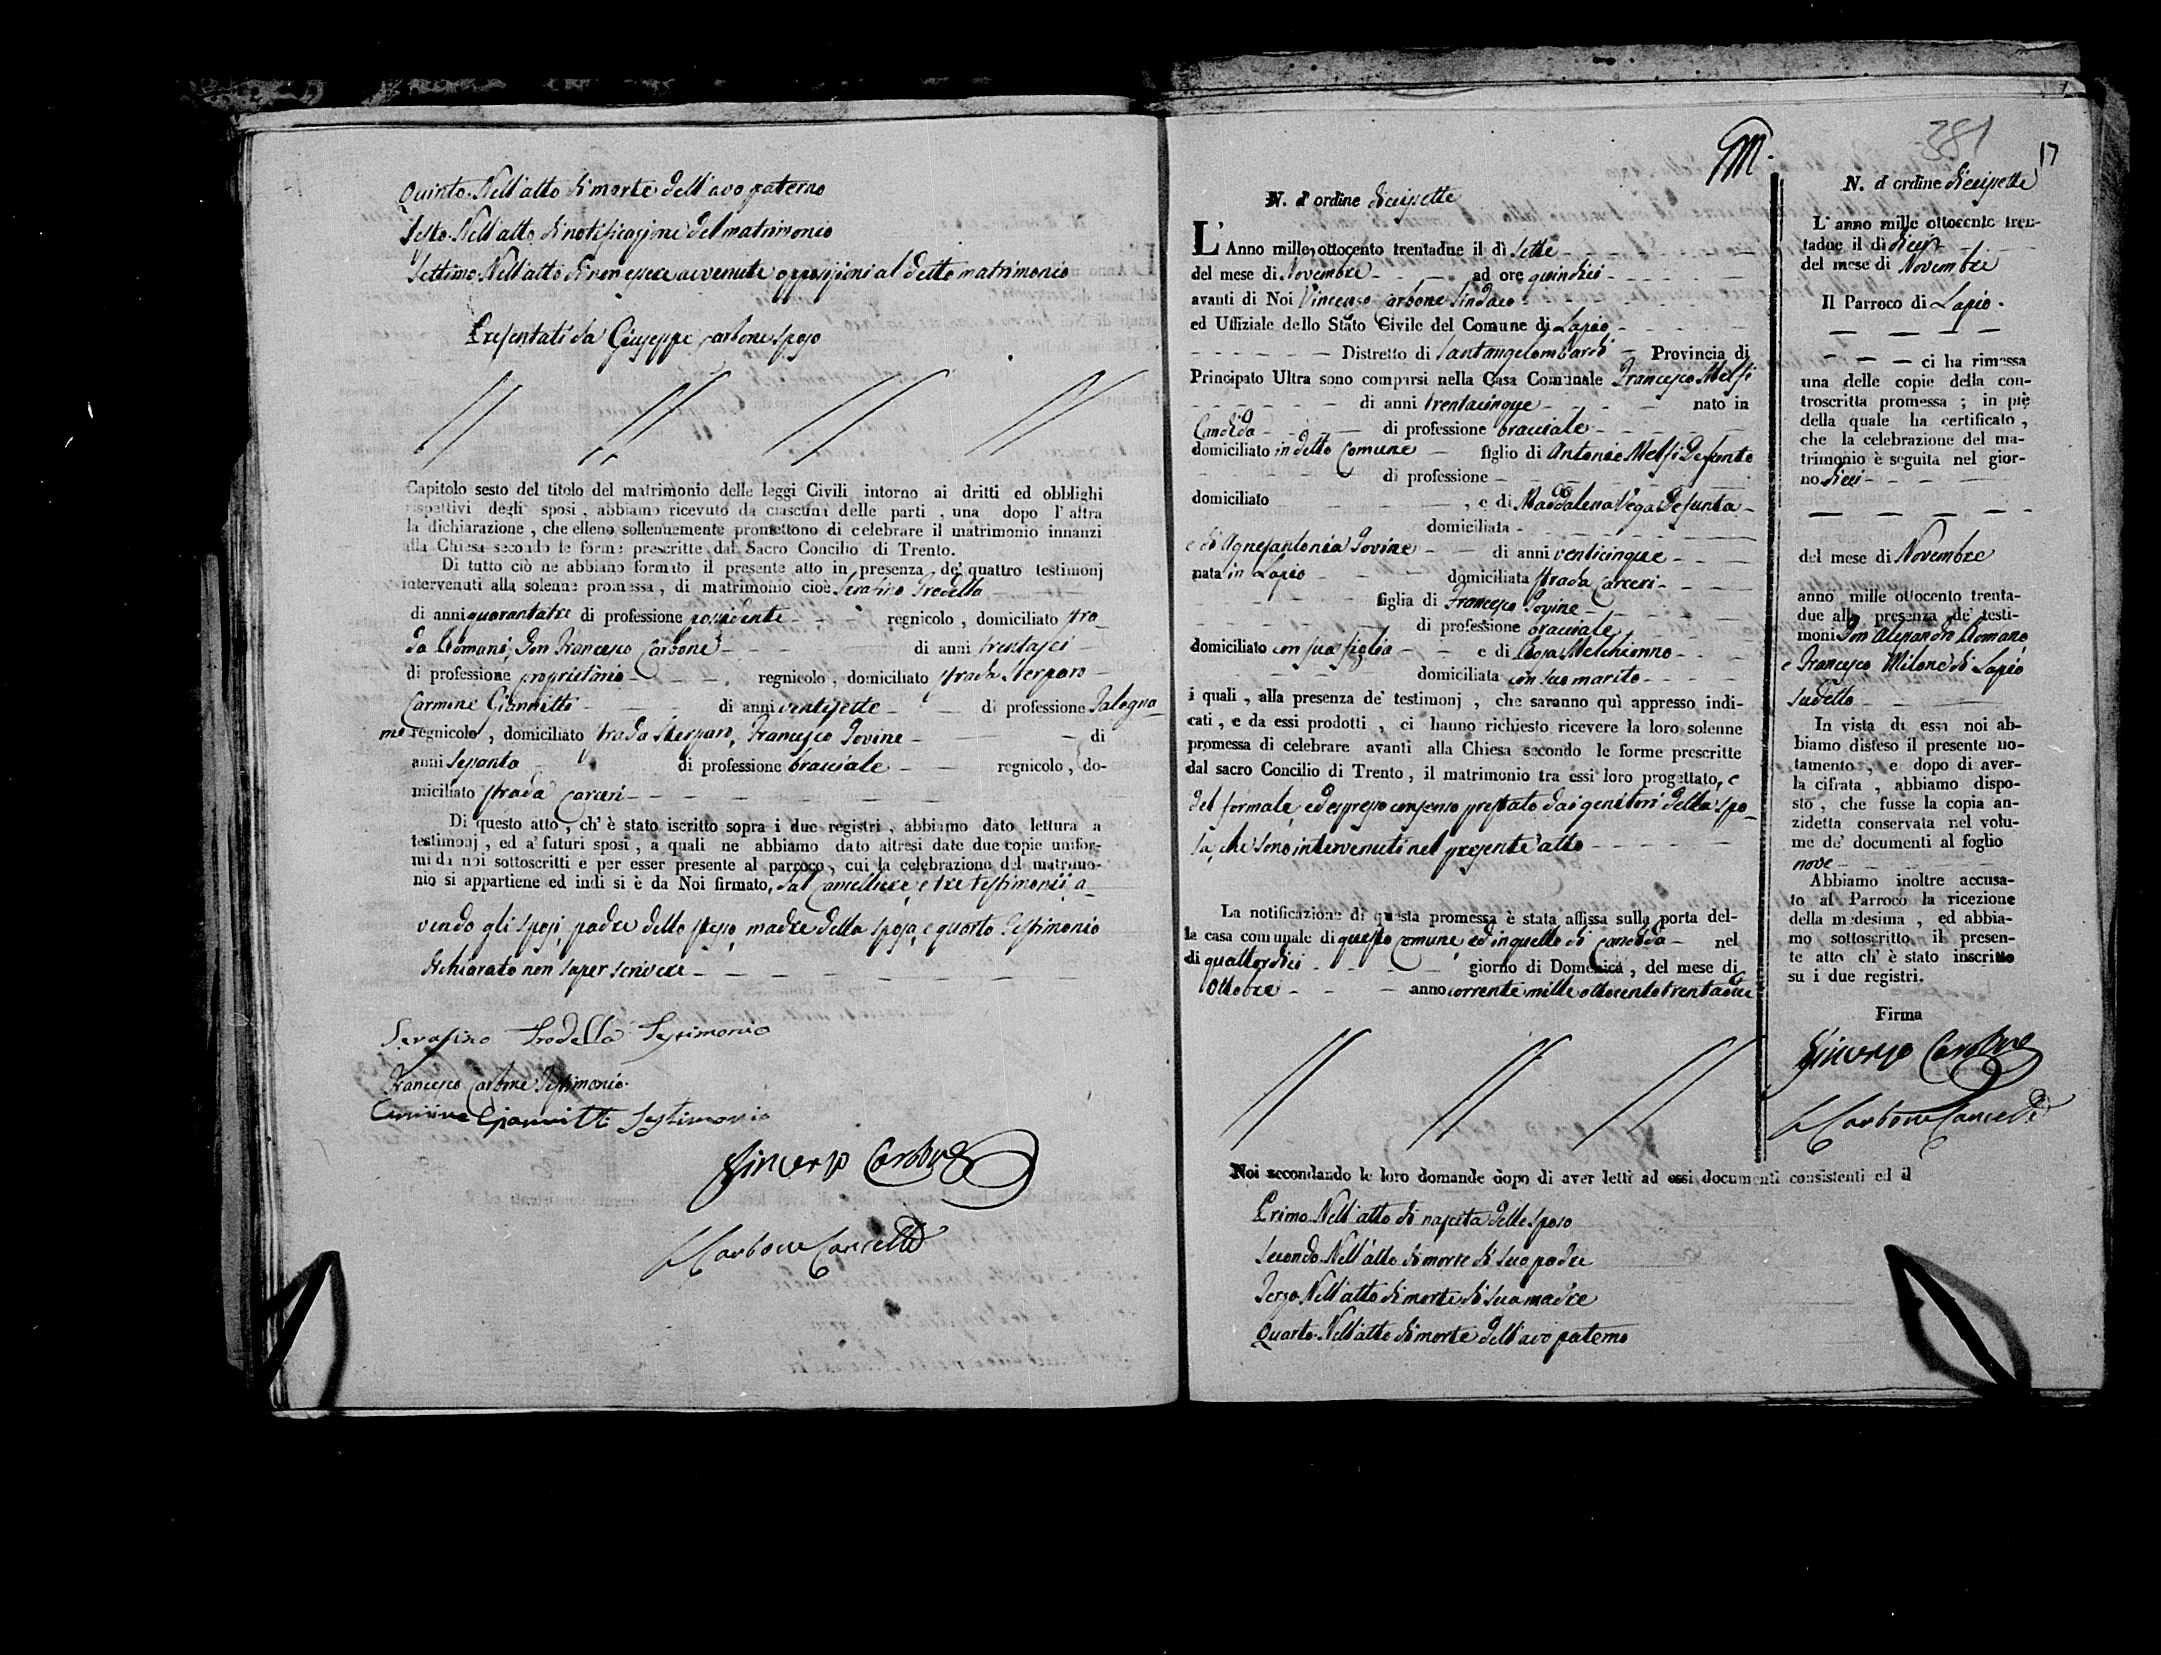 Quinto. Nell'atto di morte dell'avo paterno
Sesto. Nell'atto di notificazione del matrimonio
Settimo. Nell'atto di non essere avvenute opposizioni al detto matrimonio
Presentati da Giuseppe Carbone sposo
Capitolo sesto del titolo del matrimonio delle leggi Civili intorno ai dritti ed obblighi
rispettivi degli sposi, abbiamo ricevuto da ciascuna delle parti, una dopo l'altra
la dichiarazione, che elleno sollennemente promettono di celebrare il matrimonio innanzi
alla Chiesa secondo le forme prescritte dal Sacro Concilio di Trento.
Di tutto ciò ne abbiamo formato il presente atto in presenza de' quattro testimonj
intervenuti alla solenne promessa, di matrimonio cioè Serafino Tredella
di anni quarantatre di professione possidente regnicolo, domiciliato stra-
da Romani, Don Francesco Carbone di anni trentasei
di professione proprietario regnicolo, domiciliato strada Sterparo
Carmine Giannitti di anni ventisette di professione Falegna-
me regnicolo, domiciliato strada Sterparo, Francesco Iovine di
anni sessanta di professione bracciale regnicolo, do-
miciliato strada Carceri
Di questo atto, ch'è stato iscritto sopra i due registri, abbiamo dato lettura a
testimonj, ed a' futuri sposi, a quali ne abbiamo dato altresì date due copie unifor-
mi da noi sottoscritti e per esser presente al parroco, cui la celebrazione del matrimo-
nio si appartiene ed indi si è da Noi firmato, dal Cancelliere, e tre testimonii, a-
vendo gli sposi, padre dello stesso, madre della sposa, e quarto Testimonio
dichiarato non saper scrivere
Serafino Tredella Testimonio
Francesco Carbone Testimonio
Carmine Giannitti Testimonio
Vincenzo Carbone
Carbone Cancell.
381
17
N. d'ordine diecisette
L'Anno mille ottocento trentadue il dì sette
del mese di Novembre ad ore quindici
avanti di Noi Vincenzo Carbone Sindaco
ed Uffiziale dello Stato Civile del Comune di Lapio
Distretto di Santangelombardi Provincia di
Principato Ultra sono comparsi nella Casa Comunale Francesco Melfi
di anni trentacinque nato in
Candida di professione bracciale
domiciliato in detto Comune figlio di Antonio Melfi Defunto
di professione
domiciliato , e di Maddalena Vega Defunta
domiciliata
e di Agnesantonia Iovine di anni venticinque
nata in Lapio domiciliata strada Carceri
figlia di Francesco Iovine
di professione bracciale
domiciliato con sua figlia e di Rosa Melchionno
domiciliata con suo marito
i quali, alla presenza de' testimonj, che saranno quì appresso indi-
cati, e da essi prodotti, ci hanno richiesto ricevere la loro solenne
promessa di celebrare avanti alla Chiesa secondo le forme prescritte
dal sacro Concilio di Trento, il matrimonio tra essi loro progettato, e
del formale, ed espresso consenso prestato dai genitori della spo-
sa, che sono intervenuti nel presente atto
La notificazione di questa promessa è stata affissa sulla porta del-
la casa comunale di questo comune, ed in quello di Candida nel
dì quattordici giorno di Domenica, del mese di
Ottobre anno corrente mille ottocento trentadue
Noi secondando le loro domande dopo di aver letti ad essi documenti consistenti ed il
Primo. Nell'atto di nascita dello sposo
Secondo. Nell'atto di morte di suo padre
Terzo. Nell'atto di morte di sua madre
Quarto. Nell'atto di morte dell'avo paterno
N. d'ordine diecisette
L'anno mille ottocento tren-
tadue il dì dieci
del mese di Novembre
Il Parroco di Lapio
ci ha rimessa
una delle copie della con-
troscritta promessa; in piè
della quale ha certificato,
che la celebrazione del ma-
trimonio è seguita nel gior-
no dieci
del mese di Novembre
anno mille ottocento trenta-
due alla presenza de' testi-
moni Don Alesandro Romano
e Francesco Milone di Lapio
sudetto
In vista di essa noi ab-
biamo disteso il presente no-
tamento, e dopo di aver-
la cifrata, abbiamo dispo-
sto, che fusse la copia an-
zidetta conservata nel volu-
me de' documenti al foglio
nove
Abbiamo inoltre accusa-
to al Parroco la ricezione
della medesima, ed abbia-
mo sottoscritto il presen-
te atto ch'è stato inscritto
su i due registri.
Firma
Vincenzo Carbone
Carbone Cancell.